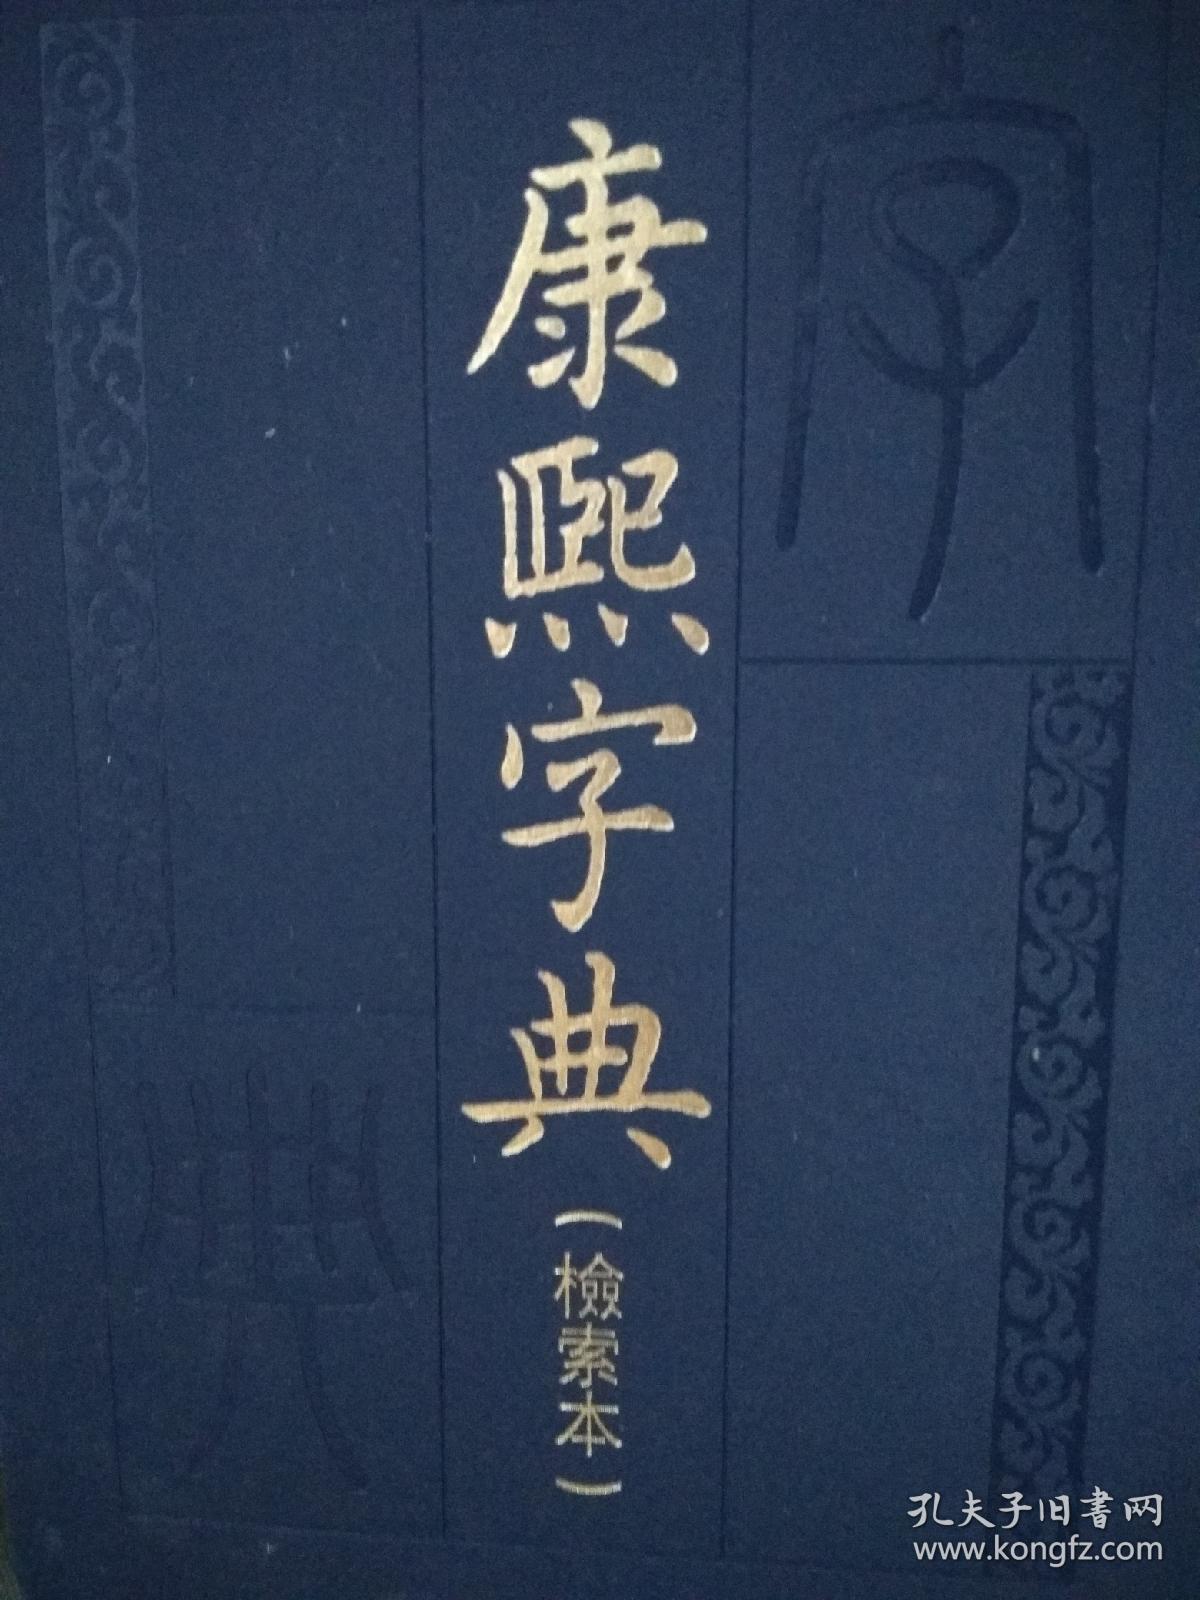 康熙字典
（檢索本）
字
典
孔夫子旧書网
www.kongfz.com